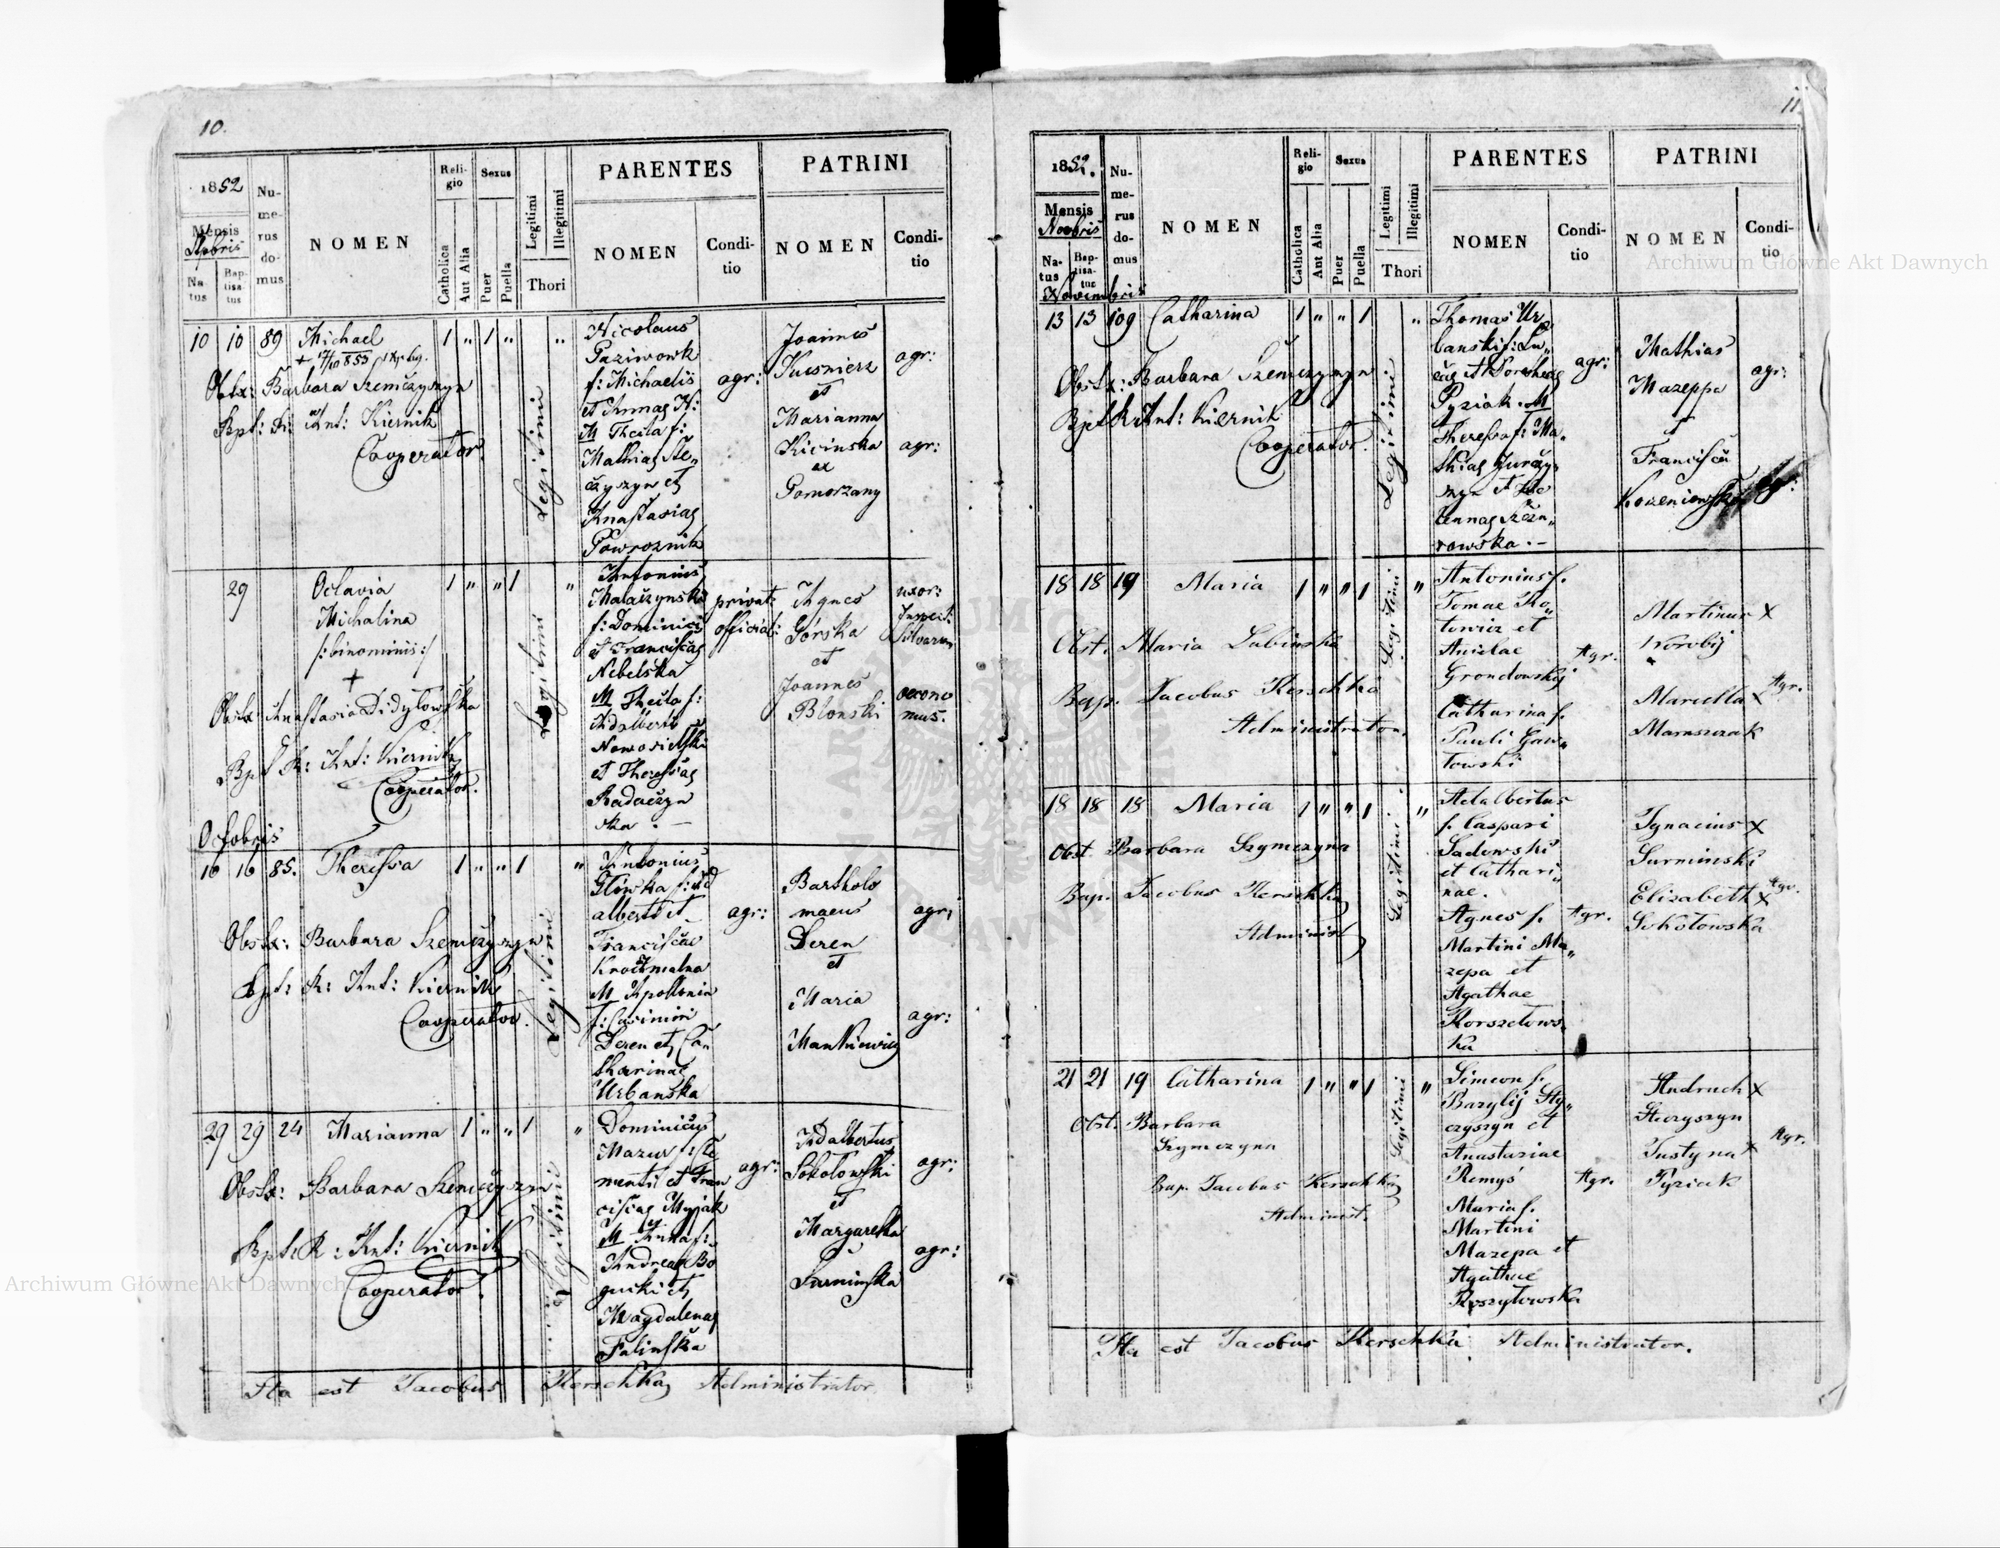 10.
1852
Mensis
7bris
Na-
tus
Bap-
tisa-
tus
Nu-
me-
rus
do-
mus
NOMEN
Reli-
gio
Catholica
Aut Alia
Sexus
Puer
Puella
Legitimi
Illegitimi
Thori
PARENTES
NOMEN
Condi-
tio
PATRINI
NOMEN
Condi-
tio
10 10 89 Michael 1 " 1 " "
Obstx: Barbara Szemczyszyn
Bpt: R: Ant: Kiernik
Cooperator.
Legitimi
Nicolaus
Paziwowk
f: Michaelis
et Annae N:
M Thecla f:
Mathiae Ste„
czyszyn et
Anastasiae
Powroznik
agr:
Joannes
Kusnierz
et
Marianna
Kicinska
ex
Pomorzany
agr:
agr:
29 Octavia 1 " " 1 "
Michalina
/:binominis:/
+
Obstx: Anastasia Didytowska
Bpt R: Ant: Kiernik
Cooperator.
Legitimi
Antonius
Malaczynski
f: Dominici
et Franciscae
Nebelska
M Thecla f:
Adalberti
Nowosielski
et Theressae
Radaczyn
ska. –
privat:
official:
Agnes
Górska
et
Joannes
Blonski
uxor:
Inspect:
Silvarum
oecono
mus.
Octobris
16 16 85. Theressa 1 " " 1 "
Obstx: Barbara Szemczyszyn
Bpt: R: Ant: Kiernik
Cooperator.
Legitimi
Antonius
Gliwka f: Ad
alberti et
Franciscae
Krochmalna
M Apollonia
f: Casimiri
Deren et Ca„
tharinae
Urbanska
agr:
Bartholo
maeus
Deren
et
Maria
Mankiewicz
agr:
agr:
29 29 24 Marianna 1 " " 1 "
Obstx: Barbara Szemczyszyn
Bpt: R: Ant: Kiernik
Cooperator.
Legitimi
Dominicus
Mazur f: Cle
mentis et Fran
ciscae Myjak
M Anna f:
Andreae Bo
guski et
Magdalenae
Falinska
agr:
Adalbertus
Sokolowski
et
Margaretha
Surminska
agr:
agr:
Ita est Jacobus Kerschka Administrator.
11
1852.
Mensis
Novbris
Na-
tus
Bap-
tisa-
tus
Nu-
me-
rus
do-
mus
NOMEN
Reli-
gio
Catholica
Aut Alia
Sexus
Puer
Puella
Legitimi
Illegitimi
Thori
PARENTES
NOMEN
Condi-
tio
PATRINI
NOMEN
Condi-
tio
Novembris
13 13 109 Catharina 1 " " 1 "
Obstx: Barbara Szemczyszyn
Bpt R: Ant: Kiernik
Cooperator.
Legitimi
Thomas Ur„
banski f: Lu„
cae et
Pyziak. M
Theressa f: Ma„
thiae Jurczy„
szyn et He
lennae
rowska. –
agr:
Mathias
Mazeppa
et
Francisca
Korzeniowska
agr:
agr:
18 18 19 Maria 1 " " 1 "
Obst. Maria Lubinska
Bap. Jacobus Kerschka
Administrator.
Legitimi
Antonius f.
Tomae Ko„
towicz et
Anielae
Grondowskij
Catharina f.
Pauli Gaw„
towski
Agr.
Martinus x
Korobij
Marcella x
Maruszczak
Agr.
18 18 18 Maria 1 " " 1 "
Obst. Barbara Szymczyna
Bap. Jacobus Kerschka
Administ
Legitimi
Adalbertus
f. Caspari
Sadowski
et Cathari„
nae.
Agnes f.
Martini Ma„
zepa et
Agathae
Korszetows„
ka
Agr.
Ignacius x
Surminski
Elizabeth x
Sokołowska
Agr.
21 21 19 Catharina 1 " " 1 "
Obst. Barbara
Szymczyna
Bap. Jacobus Kerschka
Administ.
Legitimi
Simeon f.
Bazylij Sty„
czyszyn et
Anastasiae
Remyś
Maria f.
Martini
Mazepa et
Agathae
Roszytowska
Agr.
Andruch x
Steczyszyn
Justyna x
Pyziak
Agr.
Ita est Jacobus Kerschka Administrator.
Archiwum Główne Akt Dawnych
Archiwum Główne Akt Dawnych